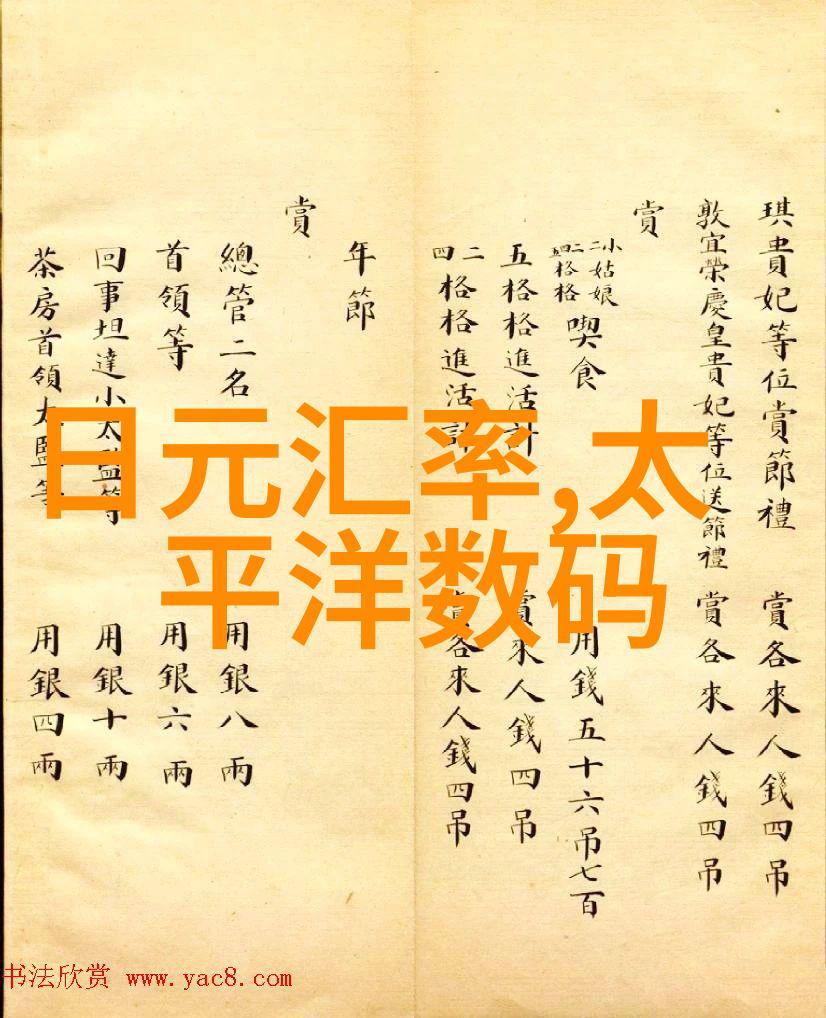 琪貴妃等位賞節禮 賞各來人錢四吊
敦宜榮慶皇貴妃等位送節禮 賞各來人錢四吊
賞
小姑娘
二格格
二四格格
喫食 用錢五十六吊七百
五格格進活計 賞來人錢四吊
二四格格進活計 賞各來人錢四吊
年節
賞
總管二名 用銀八兩
首領等 用銀六兩
回事坦達小太監等 用銀十兩
茶房首領太監等 用銀四兩
日元汇率,太
平洋数码
书法欣赏 www.yac8.com